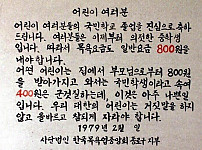 어린이 여러분
어린이 여러분들의 국민학교 졸업을 진심으로 축하
드립니다. 여러분들은 이제부터 의젓한 중학생
입니다. 따라서 목욕요금도 일반요금 800원을
내야합니다.
어떤 어린이는 집에서 부모님으로부터 800원
을 받아가지고 와서는 국민학생이라고 속여
400원은 군것질하는데, 이것은 아주 나쁜일
입니다. 우리 대한의 어린이는 거짓말을 하지
않고 올바르고 참되게 자라야 합니다.
1979年 2월 일
사단법인 한국목욕업중앙회 종로구 지부